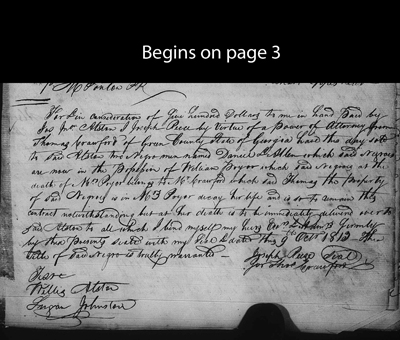 Begins on page 3
For & in consideration of Five hundred Dollars to me in hand Paid by
Jas Jno. Alston I Joseph Pace by Virtue of a Power of Attorney from
Thomas Crawford of Green County State of Georgia have this day sold
to said Alston two Negro men named Daniel & Allen which said Negroes
are now in the Possession of William Pryor which said Negroes at the
death of Mrs Pryor belongs to Mr Crawford which said Thomas the Property
of said Negroes is in Mrs Pryor during her life and is so to remain this
contract notwithstanding but at her death is to be immediately delivered over to
said Alston to all which I bind myself my heirs Exrs & Admrs Firmly
by these Presents sealed with my Seal & dated this 9th Octr 1813 The
title of said Negroes is hereby warranted
Joseph Pace Seal
for Thos Crawford
Willis Alston
Johnston